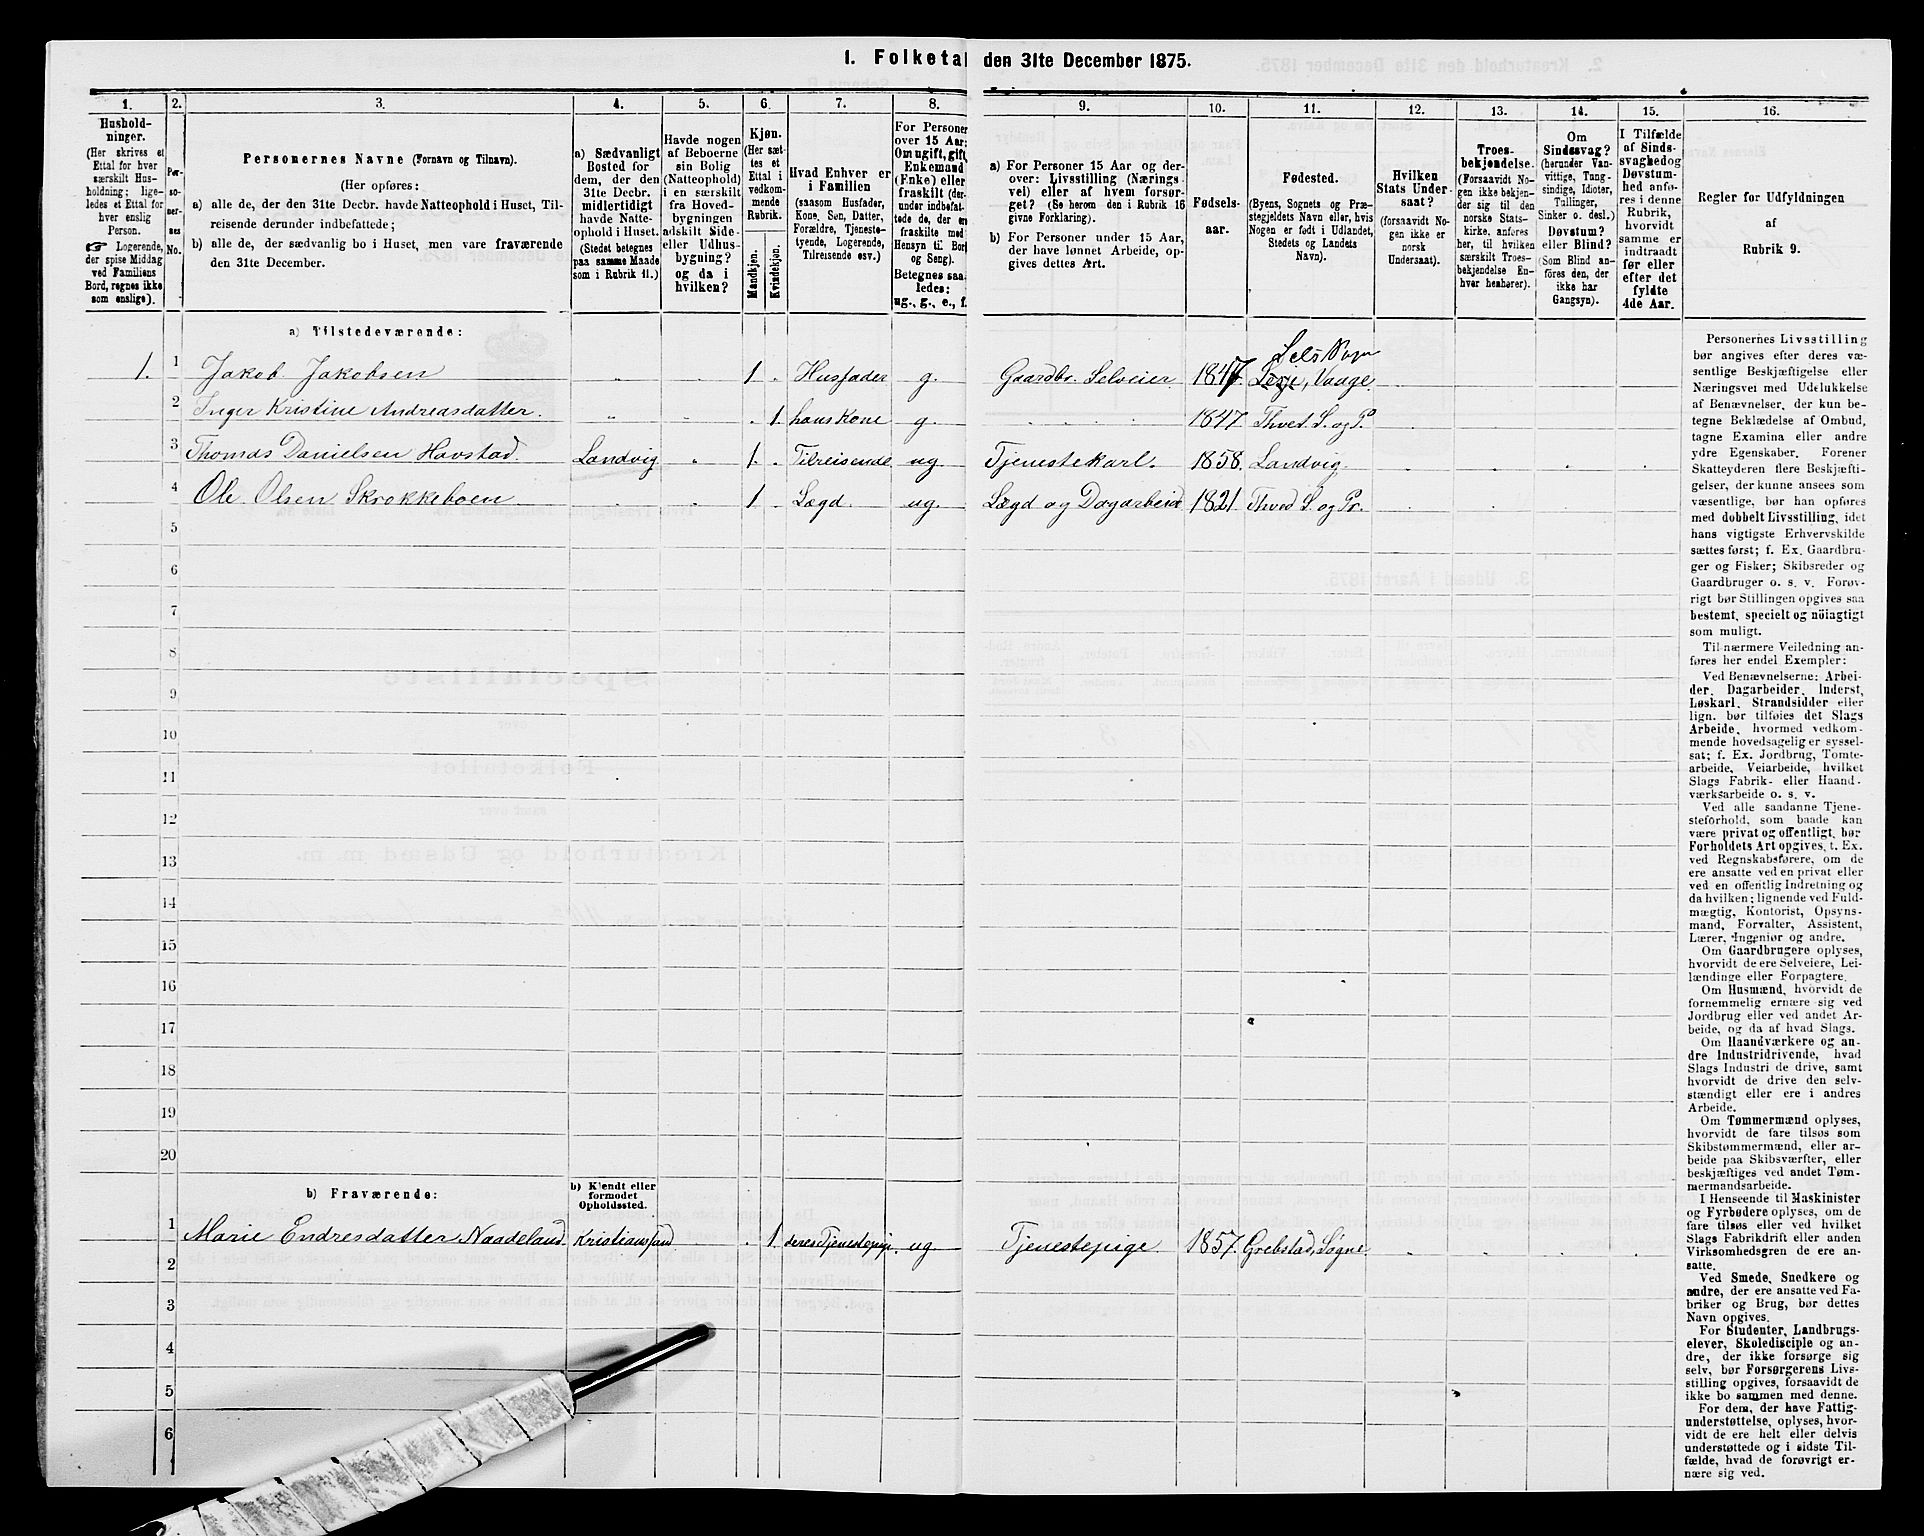 1. Folketal den 31te December 1875.
1.
2.
3.
4.
5.
6.
7.
8.
9.
10.
11.
12.
13.
14.
15.
16.
Hushold-
ninger.
(Her skrives et
Ettal for hver
særskilt Hus-
holdning; lige-
ledes et Ettal for
hver enslig
Person.
☞ Logerende,
der spise Middag
ved Familiens
Bord, regnes ikke
som enslige).
Per-
so-
ner-
nes
No.
Personernes Navne (Fornavn og Tilnavn).
(Her opføres:
a) alle de, der den 31te Decbr. havde Natteophold i Huset, Til-
reisende derunder indbefattede;
b) alle de, der sædvanlig bo i Huset, men vare fraværende
den 31te December.
a) Sædvanligt
Bosted for
dem, der den
31te Decbr.
midlertidigt
havde Natte-
ophold i Huset.
(Stedet betegnes
paa samme Maade
som i Rubrik 11.)
Havde nogen
af Beboerne
sin Bolig
(Natteophold)
i en særskilt
fra Hoved-
bygningen
adskilt Side-
eller Udhus-
bygning?
og da i
hvilken?
Kjøn.
(Her sæt-
tes et
Ettal i
vedkom-
mende
Rubrik.
Mandkjøn.
Kvindekjøn.
Hvad Enhver er
i Familien
(saasom Husfader,
Kone, Søn, Datter,
Forældre, Tjeneste-
tyende, Logerende,
Tilreisende osv.)
For Personer
over 15 Aar:
Om ugift, gift,
Enkemand
(Enke) eller
fraskilt (der-
under indbefat-
tede de, der ere
fraskilte med
Hensyn til Bord
og Seng).
Betegnes saa-
ledes:
ug., g., e., f.
a) For Personer 15 Aar og der-
over: Livsstilling (Nærings-
vei) eller af hvem forsør-
get? (Se herom den i Rubrik 16
givne Forklaring).
b) For Personer under 15 Aar,
der have lønnet Arbeide, op-
gives dettes Art.
Fødsels-
aar.
Fødested.
(Byens, Sognets og Præ-
stegjeldets Navn eller, hvis
Nogen er født i Udlandet,
Stedets og Landets
Navn).
Hvilken
Stats Under-
saat?
(forsaavidt No-
gen ikke er
norsk
Undersaat).
Troes-
bekjendelse.
(Forsaavidt No-
gen ikke bekjen-
der sig til den
norske Stats-
kirke, anføres
her, til hvilken
særskilt Troes-
bekjendelse En-
hver henhører).
Om
Sindssvag?
(herunder Van-
vittige, Tung-
sindige, Idioter,
Tullinger,
Sinker o. desl.)
Døvstum?
eller Blind?
(Som Blind an-
føres den, der
ikke har
Gangsyn).
I Tilfælde
af Sinds-
svaghed og
Døvstum-
hed anfø-
res i denne
Rubrik,
hvorvidt
samme er
indtraadt
før eller
efter det
fyldte
4de Aar.
Regler for Udfyldningen
af
Rubrik 9.
a) Tilstedeværende:
1. 1 Jakob Jakobsen 1 Husfader g. Gaardbr. Selveier 1847. Vaage
2 Inger Kristine Andreasdatter. 1 hans kone g. 1847. Thved S. og P.
3 Thomas Danielsen Havstad. Landvig 1 Tilreisende ug. Tjenestekarl. 1858. Landvig.
4 Ole Olsen Skrokkeboen 1 Lægd. ug. Lægd og Dagarbeid 1821 Thved S. og Pr.
5
6
7
8
9
10
11
12
13
14
15
16
17
18
19
20
b) Fraværende:
b) Kjendt eller
formodet
Opholdssted.
1 Marie Endresdatter Naadeland. Kristianssand 1 deres Tjenestepige. ug Tjenestepige. 1857. Grebstad, Søgne
2
3
4
5
6
Personernes Livsstilling
bør angives efter deres væ-
sentlige Beskjæftigelse eller
Næringsvei med Udelukkelse
af Benævnelser, der kun be-
tegne Beklædelse af Ombud,
tagne Examina eller andre
ydre Egenskaber. Forener
Skatteyderen flere Beskjæfti-
gelser, der kunne ansees som
væsentlige, bør han opføres
med dobbelt Livsstilling, idet
hans vigtigste Erhvervskilde
sættes først; f. Ex. Gaardbru-
ger og Fisker; Skibsreder og
Gaardbruger o. s. v. Forøv-
rigt bør Stillingen opgives saa
bestemt, specielt og nöiagtigt
som muligt.
Til nærmere Veiledning an-
føres her endel Exempler:
Ved Benævnelserne: Arbei-
der, Dagarbeider, Inderst,
Løskarl, Strandsidder eller
lign. bør tilføies det Slags
Arbeide, hvormed vedkom-
mende hovedsagelig er syssel-
sat; f. Ex. Jordbrug, Tomte-
arbeide, Veiarbeide, hvilket
Slags Fabrik- eller Haand-
værksarbeide o. s. v.
Ved alle saadanne Tjene-
steforhold, som baade kan
være privat og offentligt, bør
Forholdets Art opgives, t. Ex.
ved Regnskabsførere, om de
ere ansatte ved en privat eller
ved en offentlig Indretning og
da hvilken; lignende ved Fuld-
mægtig, Kontorist, Opsyns-
mand, Forvalter, Assistent,
Lærer, Ingeniør og andre.
Om Gaardbrugere oplyses,
hvorvidt de ere Selveiere, Lei-
lændinge eller Forpagtere.
Om Husmænd, hvorvidt de
fornemmelig ernære sig ved
Jordbrug eller ved andet Ar-
beide, og da af hvad Slags.
Om Haandværkere og an-
dre Industridrivende, hvad
Slags Industri de drive, samt
hvorvidt de drive den selv-
stændigt eller ere i andres
Arbeide.
Om Tømmermænd oplyses,
hvorvidt de fare tilsøs som
Skibstømmermænd, eller ar-
beide paa Skibsværfter, eller
beskjæftiges ved andet Tøm-
mermandsarbeide.
I Henseende til Maskinister
og Fyrbødere oplyses, om de
fare tilsøs eller ved hvilket
Slags Fabrikdrift eller anden
Virksomhedsgren de ere an-
satte.
Ved Smede, Snedkere og
andre, der ere ansatte ved Fa-
briker og Brug, bør dettes
Navn opgives.
For Studenter, Landbrugs-
elever, Skoledisciple og an-
dre, der ikke forsørge sig
selv, bør Forsørgerens Livs-
stilling opgives, forsaavidt de
ikke bo sammen med denne.
For dem, der have Fattig-
understøttelse, oplyses, hvor-
vidt de ere helt eller delvis
understøttede og i sidste Til-
fælde, hvad de forøvrigt er-
nære sig ved.